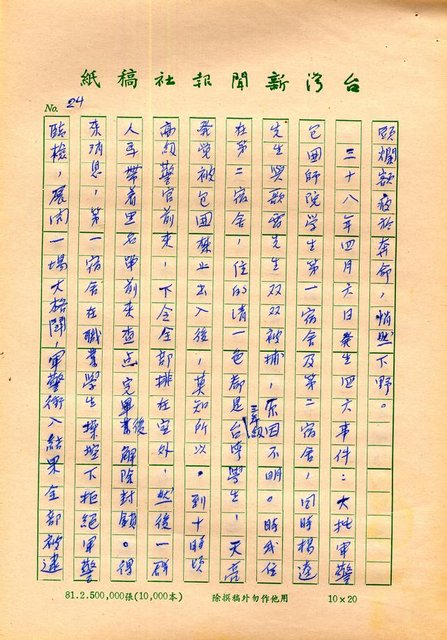 紙稿社報聞新灣台
No. 24
頭爛額疲於奔命，悄然下野。
三十八年四月六日發生四六事件：大批軍警
包圍師院學生第一宿舍及第二宿舍，同時楊逵
先生與歌雷先生双双被捕，原因不明。時我住
在第二宿舍，住的清一色都是台灣學生，天亮
三年級
發覺被包圍禁止出入後，莫知所以。到十時許
高級警官前來，下令全部排在室外，然後一群
人手帶着黑名單前來查点完畢後解除封鎖。得
來消息，第一宿舍在職業學生操控下拒絕軍警
臨檢，展開一場大格鬪，軍警衝入結果全部被逮
81.2.500,000張(10,000本)
除撰稿外勿作他用
10×20